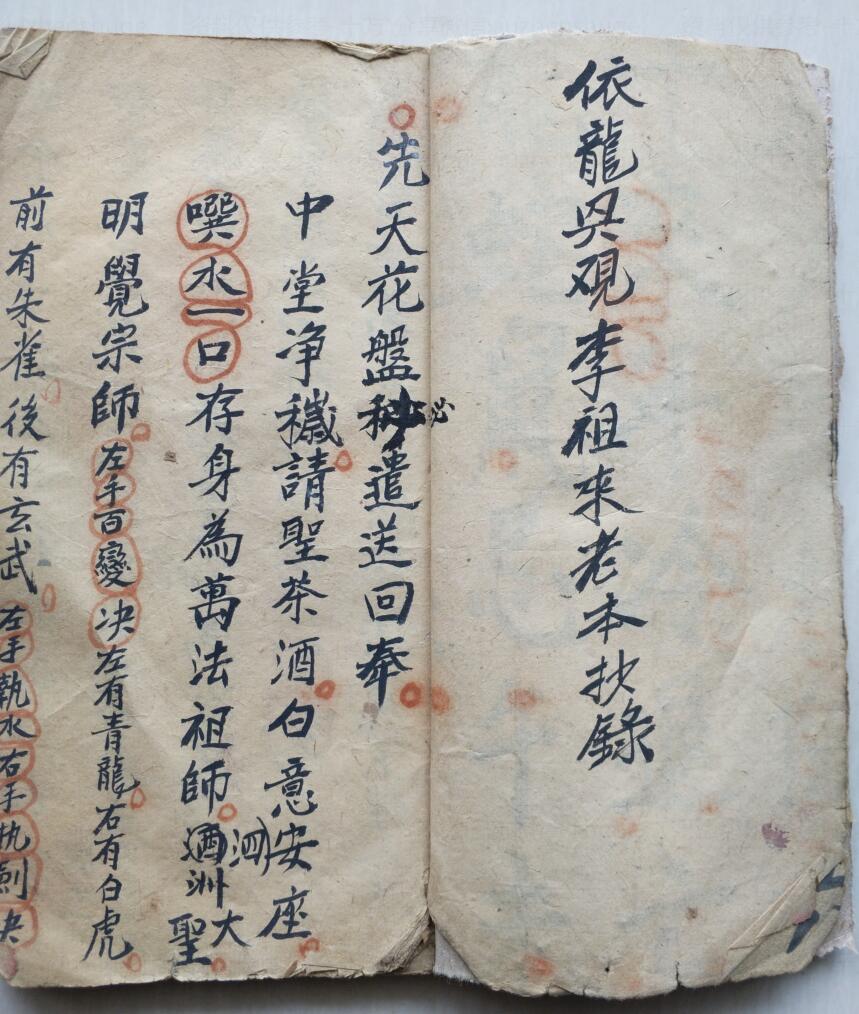 依龍吳观李祖來老本抄錄
先天花盤秘遣送回奉
中堂净穢請聖茶酒白意安座
噀水一口存身為萬法祖師泗洲大聖
明覺宗師左手百變决左有青龍右有白虎
前有朱雀後有玄武左手執水右手执劍决